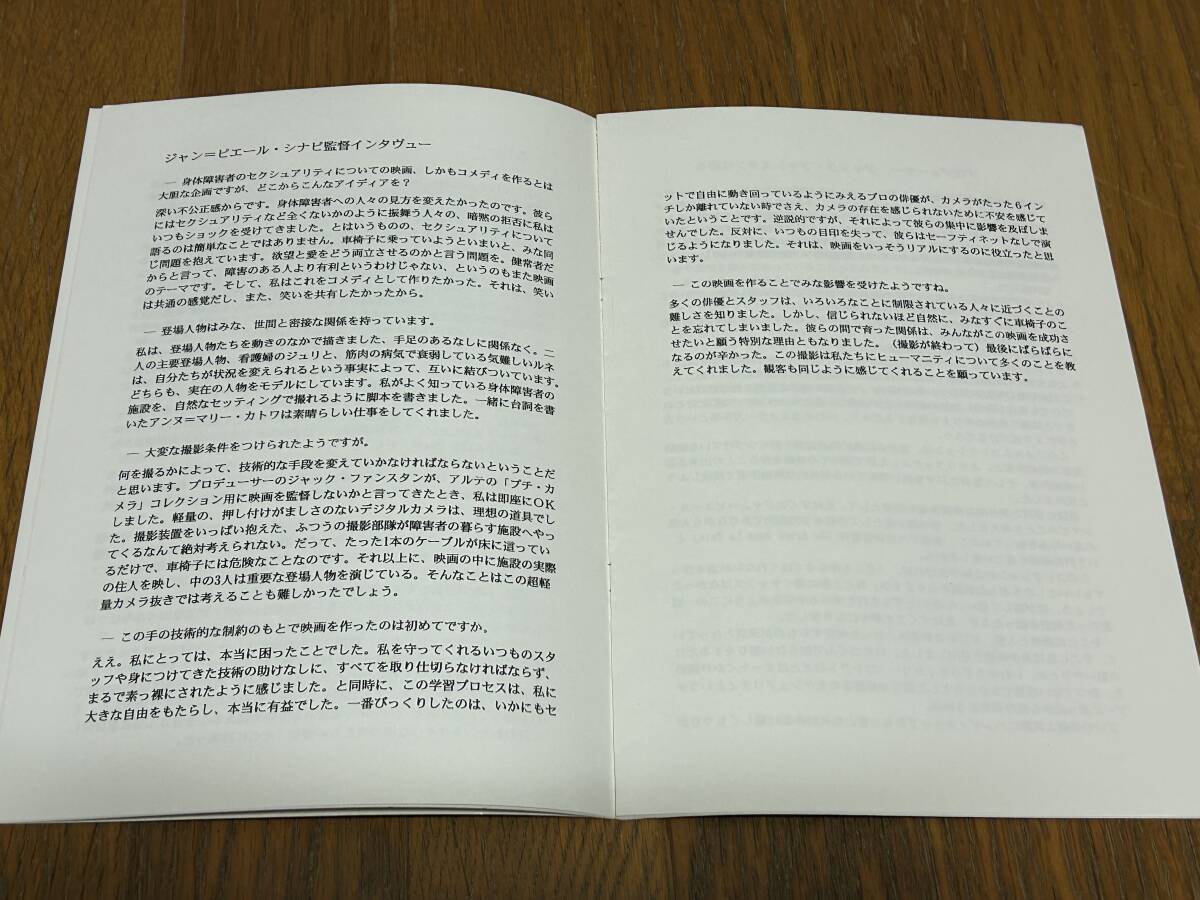 ジャン＝ピエール・シナピ監督インタヴュー
― 身体障害者のセクシュアリティについての映画、しかもコメディを作るとは
大胆な企画ですが、どこからこんなアイディアを？
深い不公正感からです。身体障害者への人々の見方を変えたかったのです。彼ら
にはセクシュアリティなど全くないかのように振舞う人々の、暗黙の拒否に私は
いつもショックを受けてきました。とはいうものの、セクシュアリティについて
語るのは簡単なことではありません。車椅子に乗っていようといまいと、みな同
じ問題を抱えています。欲望と愛をどう両立させるのかと言う問題を。健常者だ
からと言って、障害のある人より有利というわけじゃない、というのもまた映画
のテーマです。そして、私はこれをコメディとして作りたかった。それは、笑い
は共通の感覚だし、また、笑いを共有したかったから。
― 登場人物はみな、世間と密接な関係を持っています。
私は、登場人物たちを動きのなかで描きました、手足のあるなしに関係なく。二
人の主要登場人物、看護婦のジュリと、筋肉の病気で衰弱している気難しいルネ
は、自分たちが状況を変えられるという事実によって、互いに結びついています。
どちらも、実在の人物をモデルにしています。私がよく知っている身体障害者の
施設を、自然なセッティングで撮れるように脚本を書きました。一緒に台詞を書
いたアンヌ＝マリー・カトワは素晴らしい仕事をしてくれました。
― 大変な撮影条件をつけられたようですが。
何を撮るかによって、技術的な手段を変えていかなければならないということだ
と思います。プロデューサーのジャック・ファンスタンが、アルテの「プチ・カ
メラ」コレクション用に映画を監督しないかと言ってきたとき、私は即座にOK
しました。軽量の、押し付けがましさのないデジタルカメラは、理想の道具でし
た。撮影装置をいっぱい抱えた、ふつうの撮影部隊が障害者の暮らす施設へやっ
てくるなんて絶対考えられない。だって、たった1本のケーブルが床に這ってい
るだけで、車椅子には危険なことなのです。それ以上に、映画の中に施設の実際
の住人を映し、中の3人は重要な登場人物を演じている。そんなことはこの超軽
量カメラ抜きでは考えることも難しかったでしょう。
― この手の技術的な制約のもとで映画を作ったのは初めてですか。
ええ。私にとっては、本当に困ったことでした。私を守ってくれるいつものスタ
ッフや身につけてきた技術の助けなしに、すべてを取り仕切らなければならず、
まるで素っ裸にされたように感じました。と同時に、この学習プロセスは、私に
大きな自由をもたらし、本当に有益でした。一番びっくりしたのは、いかにもセ
ットで自由に動き回っているようにみえるプロの俳優が、カメラがたった６イン
チしか離れていない時でさえ、カメラの存在を感じられないために不安を感じて
いたということです。逆説的ですが、それによって彼らの集中に影響を及ぼしま
せんでした。反対に、いつもの目印を失って、彼らはセーフティネットなしで演
じるようになりました。それは、映画をいっそうリアルにするのに役立ったと思
います。
― この映画を作ることでみな影響を受けたようですね。
多くの俳優とスタッフは、いろいろなことに制限されている人々に近づくことの
難しさを知りました。しかし、信じられないほど自然に、みなすぐに車椅子のこ
とを忘れてしまいました。彼らの間で育った関係は、みんながこの映画を成功さ
せたいと願う特別な理由ともなりました。（撮影が終わって）最後にばらばらに
なるのが辛かった。この撮影は私たちにヒューマニティについて多くのことを教
えてくれました。観客も同じように感じてくれることを願っています。